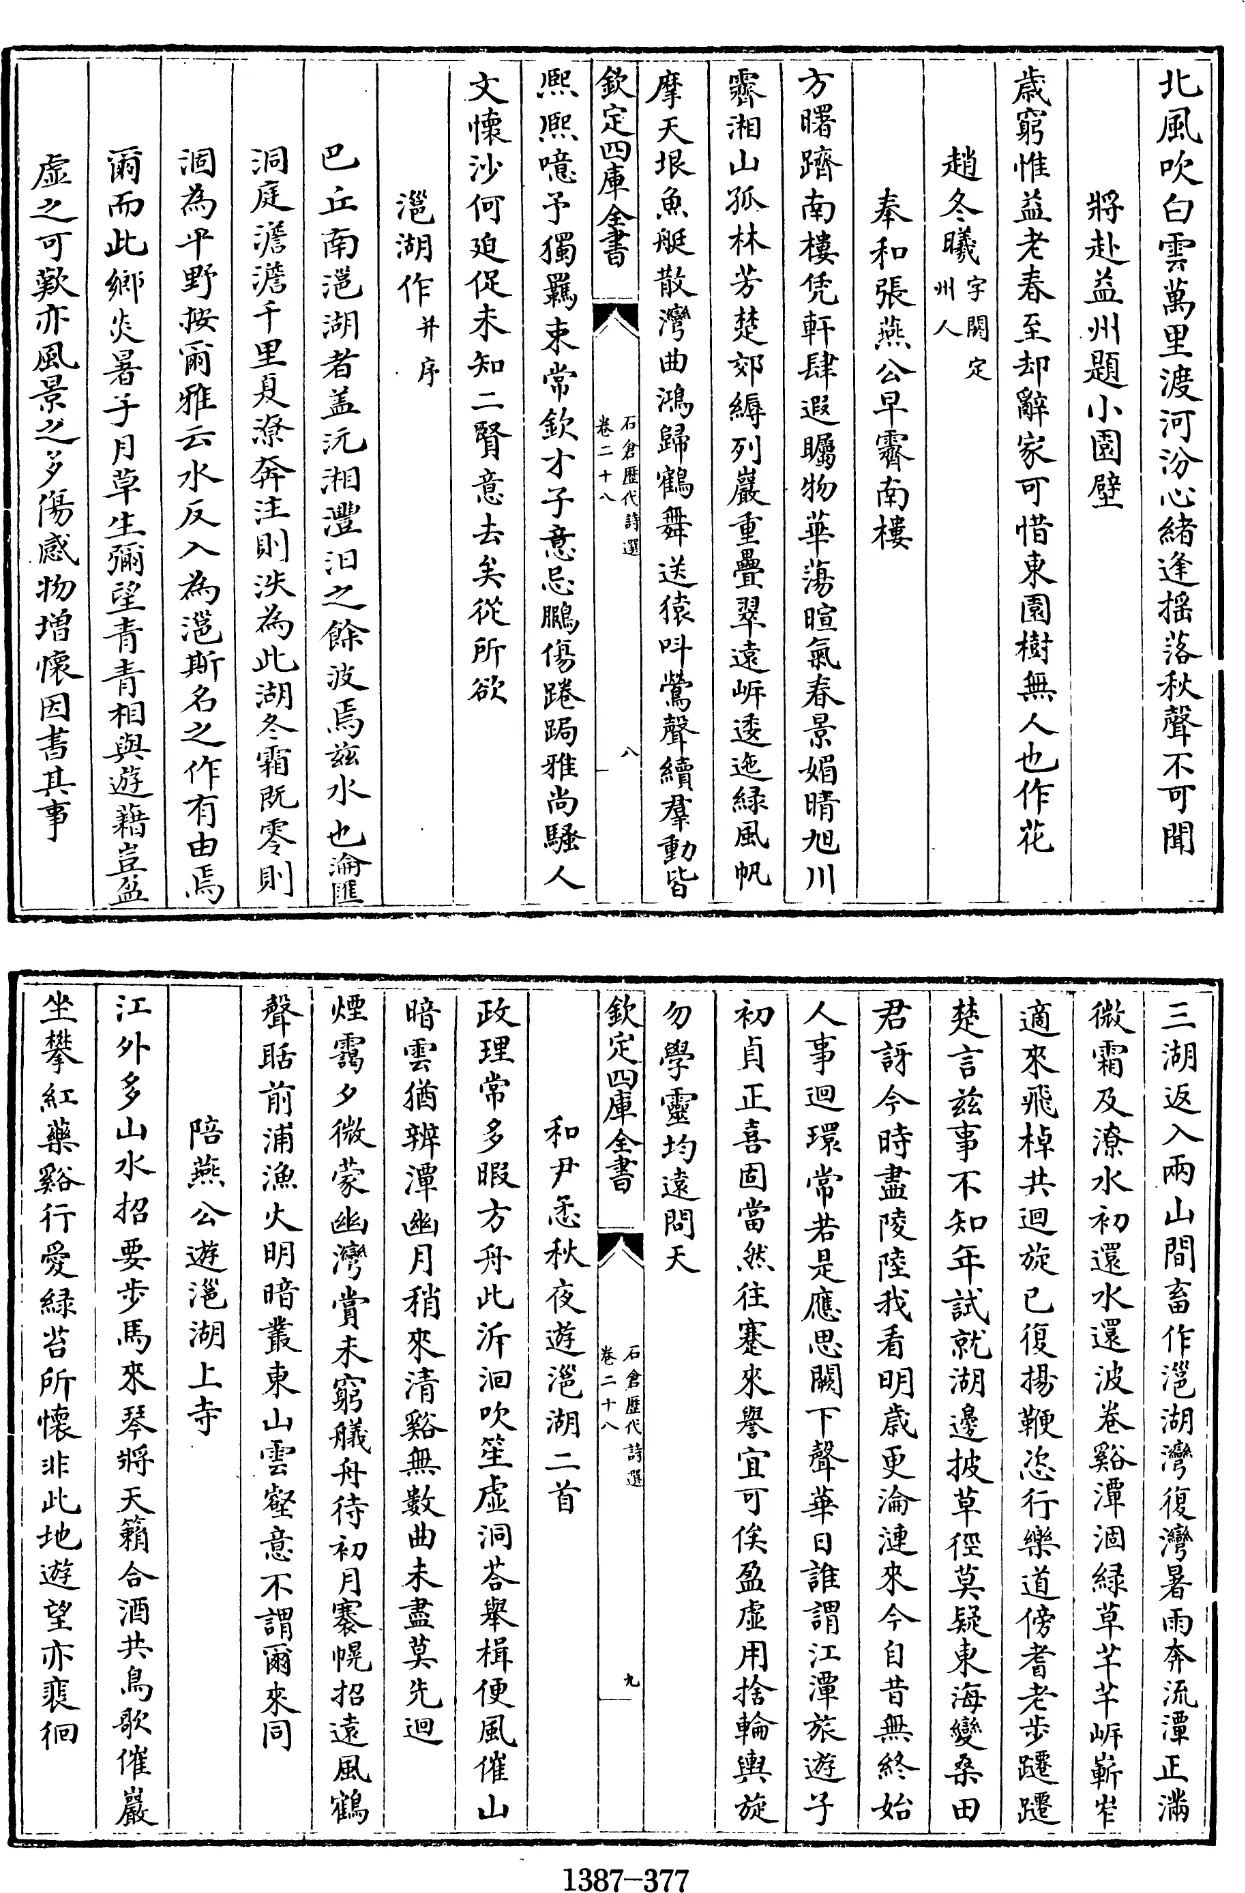 北風吹白雲萬里渡河汾心緒逢揺落秋聲不可聞
將赴益州題小園壁
歳窮惟益老春至却辭家可惜東園樹無人也作花
趙冬曦字闕定州人
奉和張燕公早霽南樓
方曙躋南樓凭軒肆遐矚物華蕩暄氣春景媚晴旭川
霽湘山孤林芳楚郊縟列巖重疊翠遠岍逶迤緑風帆
摩天垠魚艇散灣曲鴻歸鶴舞送猿呌鶯聲續羣動皆
欽定四庫全書
石倉歴代詩選
卷二十八
八
熈熈噫予獨羈束常欽才子意忌鵩傷踡跼雅尚騷人
文懐沙何廹促未知二賢意去矣從所欲
㴩湖作并序
巴丘南㴩湖者盖沅湘澧汨之餘波焉兹水也淪匯
洞庭澹澹千里夏潦奔注則泆為此湖冬霜既零則
涸為平野按爾雅云水反入為㴩斯名之作有由焉
爾而此鄉炎暑子月草生彌望青青相與遊藉豈盈
虚之可歎亦風景之多傷感物増懐因書其事
三湖返入兩山間畜作㴩湖灣復灣暑雨奔流潭正滿
微霜及潦水初還水還波卷谿潭涸緑草芊芊岍嶄岝
適來飛棹共迴旋已復揚鞭恣行樂道傍耆老步躚躚
楚言兹事不知年試就湖邊披草徑莫疑東海變桑田
君訝今時盡陵陸我看明歲更淪漣來今自昔無終始
人事迴環常若是應思闕下聲華日誰謂江潭旅遊子
初貞正喜固當然往蹇來譽宜可俟盈虚用捨輪輿旋
勿學靈均遠問天
欽定四庫全書
石倉歴代詩選
卷二十八
九
和尹懋秋夜遊㴩湖二首
政理常多暇方舟此泝洄吹笙虛洞荅舉楫便風催山
暗雲猶辨潭幽月稍來清谿無數曲未盡莫先迴
煙靄夕微蒙幽灣賞未窮艤舟待初月褰幌招遠風鶴
聲聒前浦漁火明暗叢東山雲壑意不謂爾來同
陪燕公遊㴩湖上寺
江外多山水招要步馬來琴將天籟合酒共鳥歌催巖
坐攀紅藥谿行愛緑苔所懐非此地遊望亦裴徊
1387-377